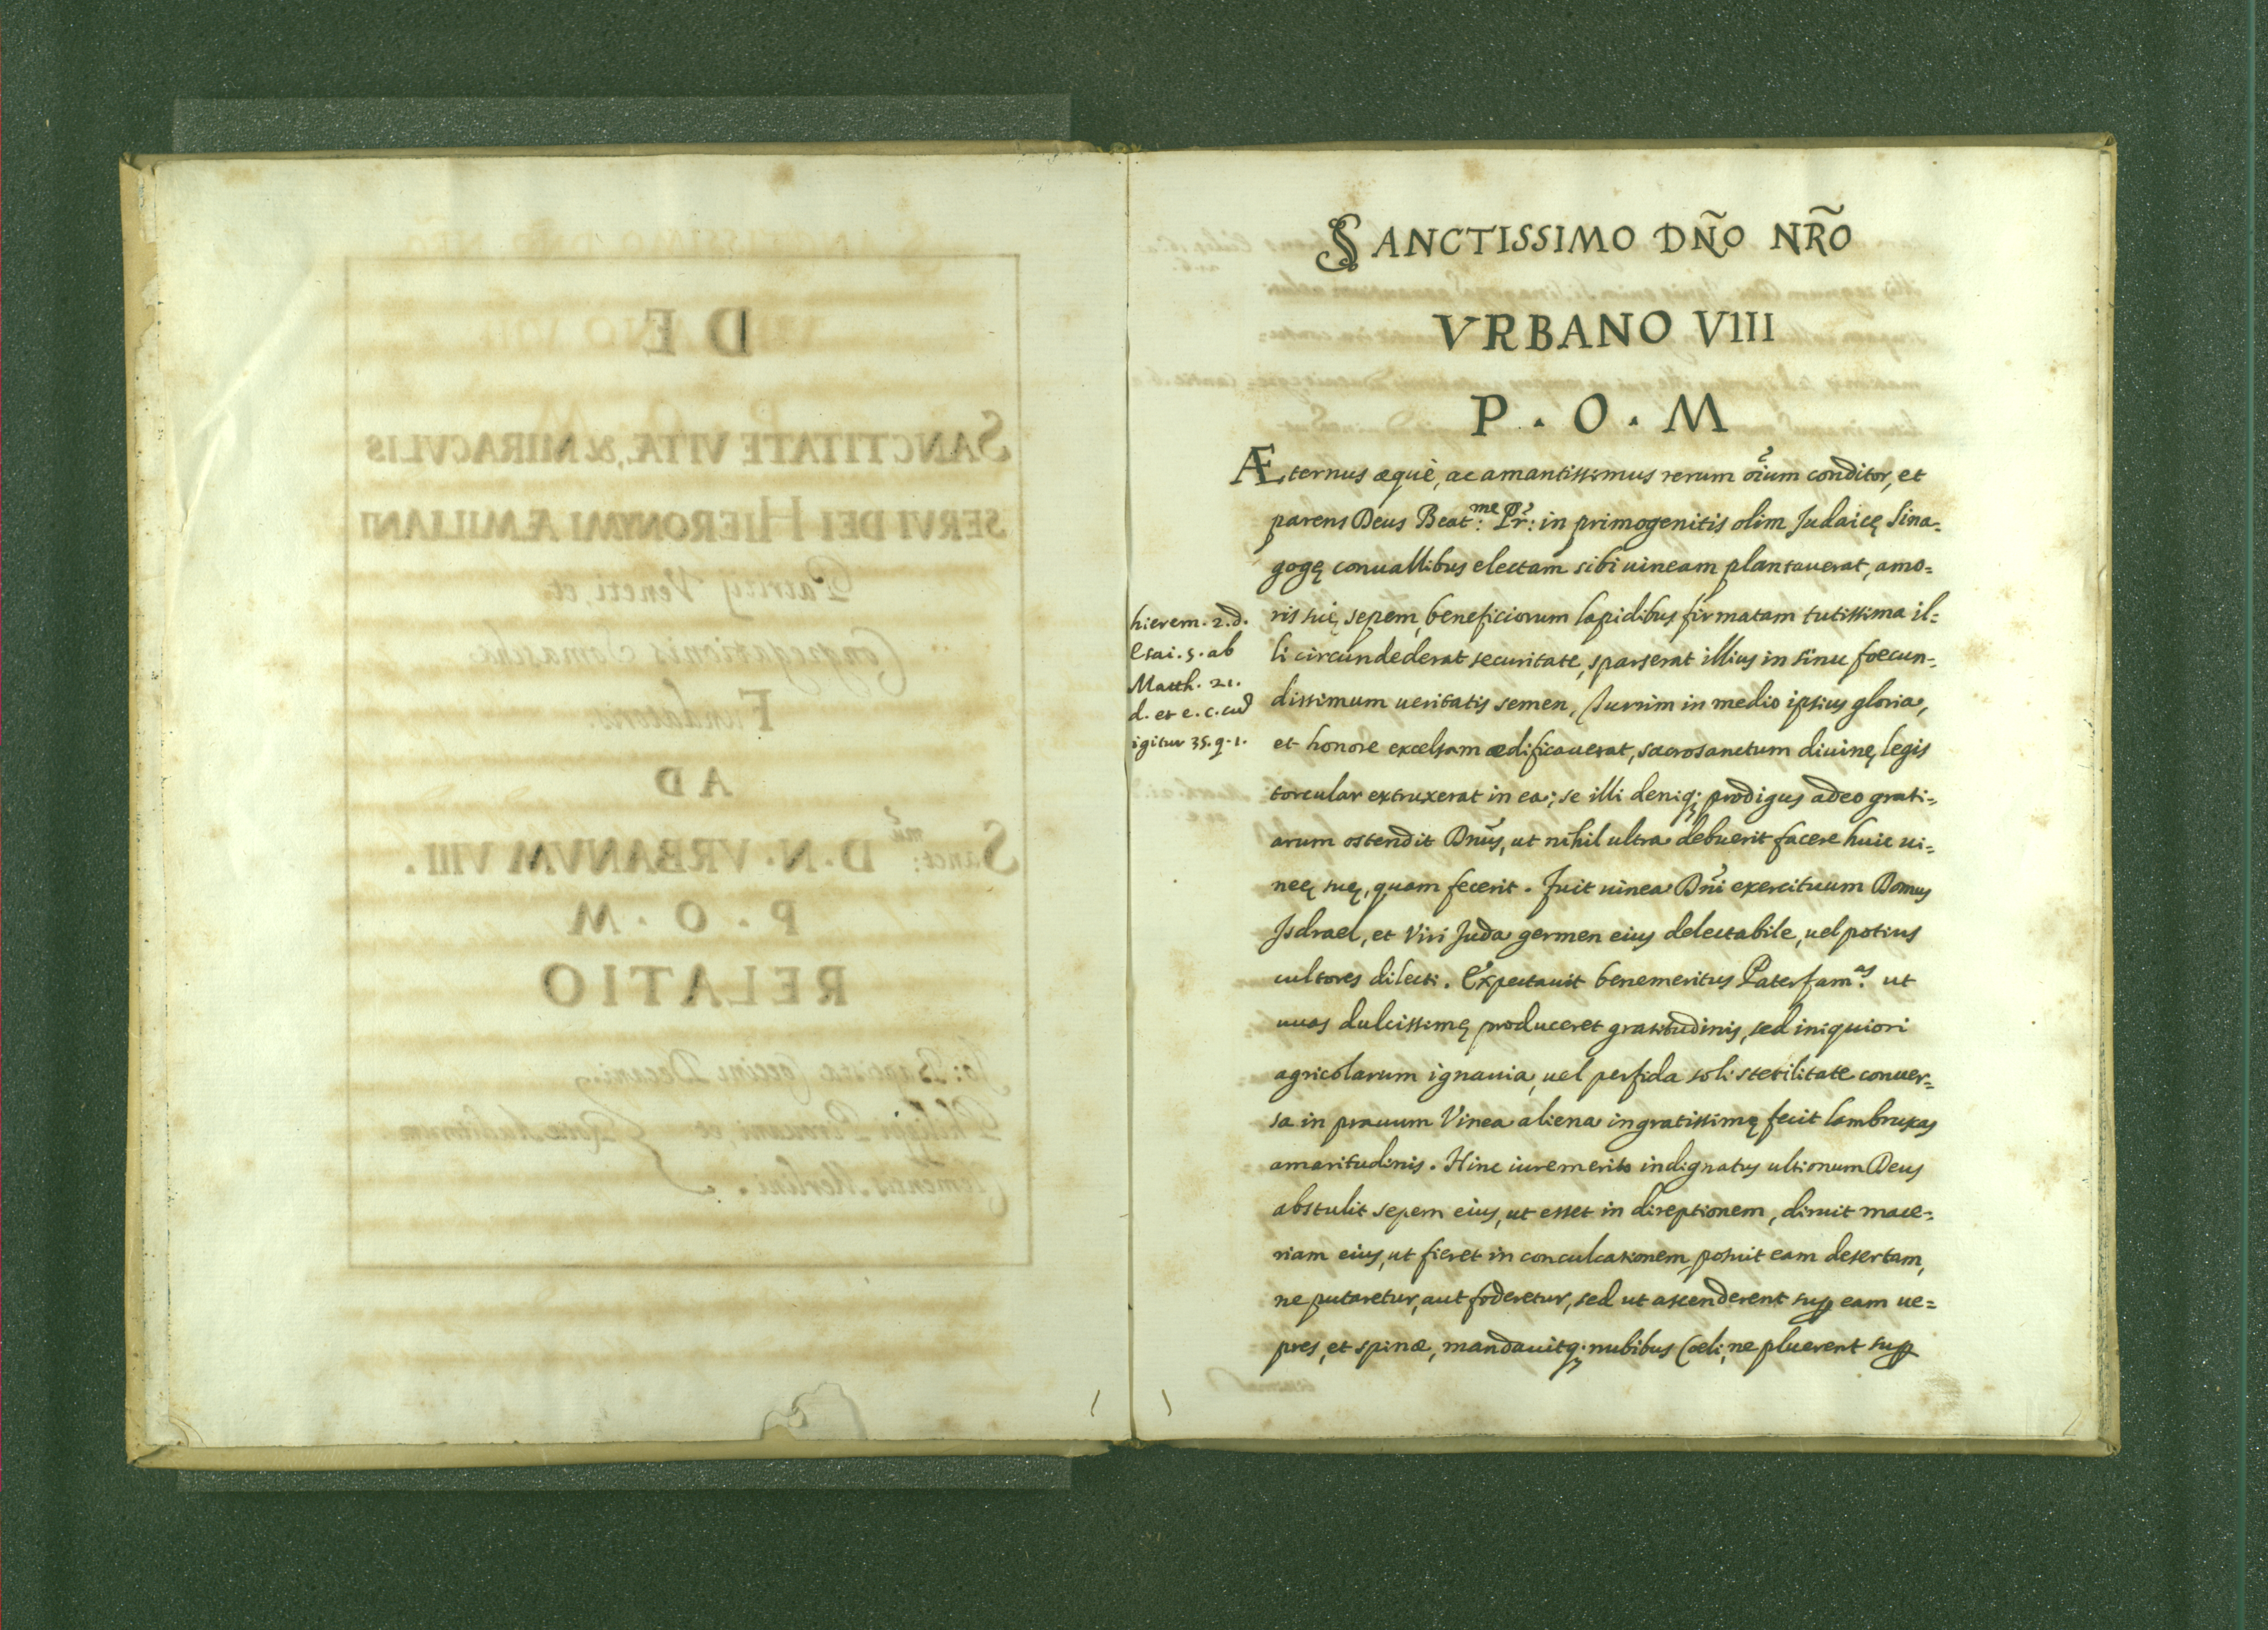 SANCTISSIMO DÑO NR̃O
VRBANO VIII
P . O . M
Æternus æquè, ac amantissimus rerum oĩum conditor, et
parens Deus Beat:me Pr̃: in primogenitis olim Judaicę Sina=
gogę conuallibus electam sibi uineam plantauerat, amo=
ris suę sepem, beneficiorum lapidibus firmatam tutissima il=
li circundederat securitate, sparserat illius in sinu foecun=
dissimum ueritatis semen, Turrim in medio ipsius gloria,
et honore excelsam ædificauerat, sacrosanctum diuinę legis
torcular extruxerat in ea; se illi deniq; prodigus adeo grati=
arum ostendit Dñus, ut nihil ultra debuerit facere huic ui=
neę suę, quam fecerit. Fuit uinea Dñi exercituum Domus
Isdrael, et Viri Juda germen eius delectabile, uel potius
cultores dilecti. Expectauit benemeritus Paterfam:as ut
uuas dulcissimę produceret gratitudinis, sed iniquiori
agricolarum ignauia, uel perfida soli sterilitate conuer=
sa in prauum Vinea aliena ingratissimę fecit lambruxas
amaritudinis. Hinc iure merito indignatus ultionum Deus
abstulit sepem eius, ut esset in direptionem, diruit mace=
riam eius, ut fieret in conculcationem, posuit eam desertam,
ne putaretur, aut foderetur, sed ut ascenderent sup eam ue=
pres, et spinæ, mandauitq; nubibus Cœli, ne pluerent sup
hierem. 2. d.
Esai. 5. ab
Matth. 21.
d. et e. c. cũ
igitur 35. q. 1.
DE
SANCTITATE VITÆ, & MIRACVLIS
SERVI DEI HIERONYMI ÆMILIANI
Patritij Veneti, et
Congregationis Somaschę
Fundatoris
AD
Sanct:mũ D. N. VRBANVM VIII.
P. O. M
RELATIO
Io: Baptistæ Coccini Decani
Philippi Pirouani et Rotæ Auditorum
Clementis Merlini.